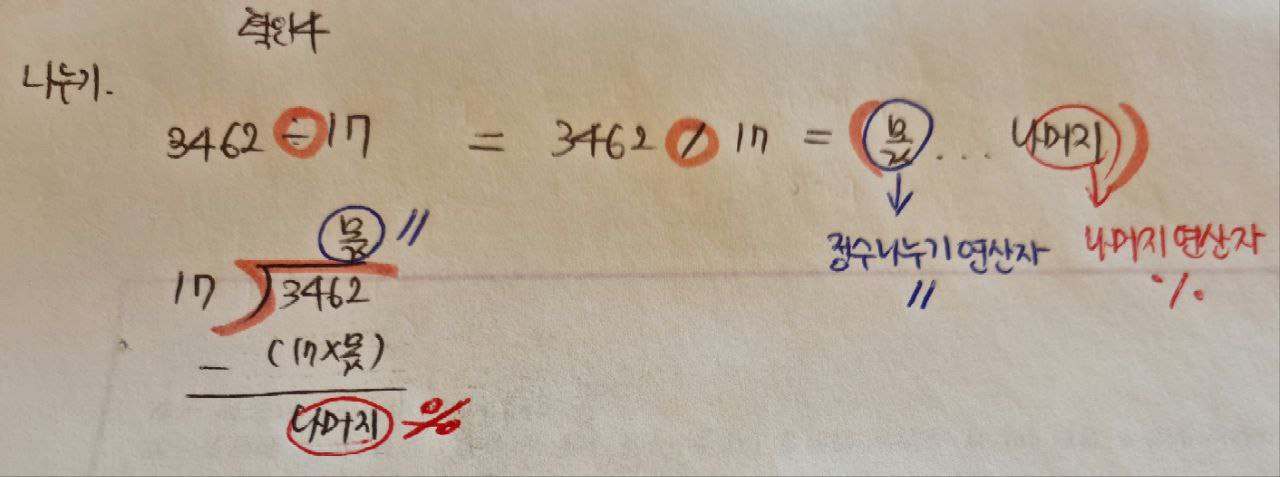 확인4
나누기.
3462 ÷ 17 = 3462 / 17 = (몫 ... 나머지)
정수나누기 연산자 나머지 연산자
// %
몫 //
17 ) 3462
- (17 × 몫)
나머지 %